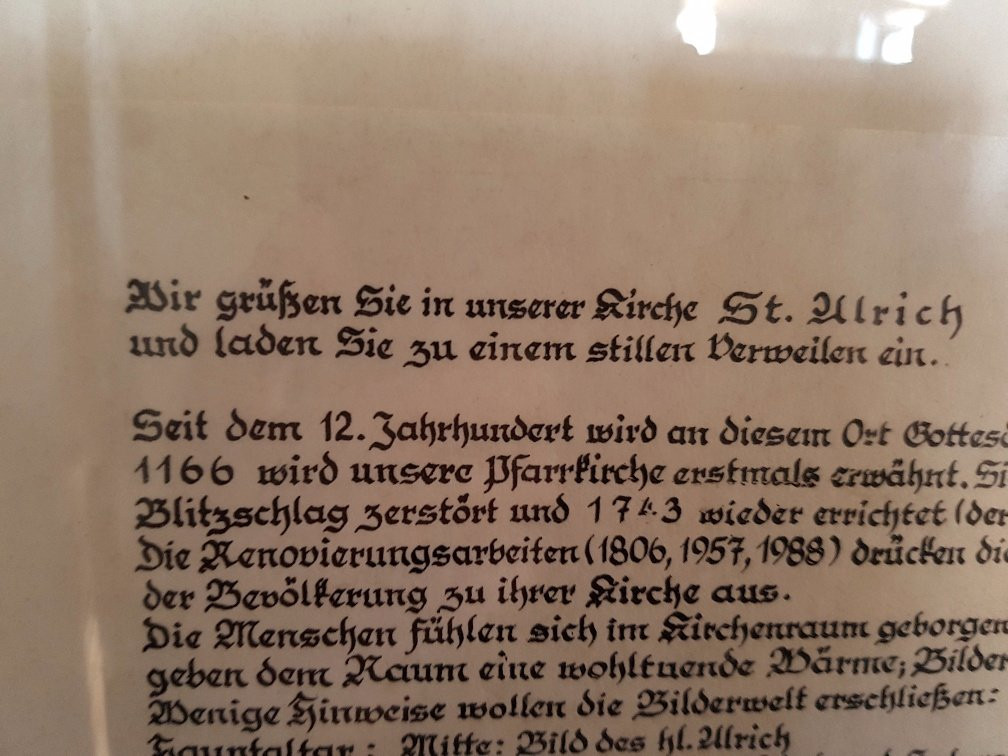 Wir grüßen Sie in unserer Kirche St. Ulrich
und laden Sie zu einem stillen Verweilen ein.
Seit dem 12. Jahrhundert wird an diesem Ort Gottesd
1166 wird unsere Pfarrkirche erstmals erwähnt. Si
Blitzschlag zerstört und 1743 wieder errichtet (der
Die Renovierungsarbeiten (1806, 1957, 1988) drücken di
der Bevölkerung zu ihrer Kirche aus.
Die Menschen fühlen sich im Kirchenraum geborgen
geben dem Raum eine wohltuende Wärme; Bilder
Wenige Hinweise wollen die Bilderwelt erschließen:
Hauptaltar: Mitte: Bild des hl. Ulrich